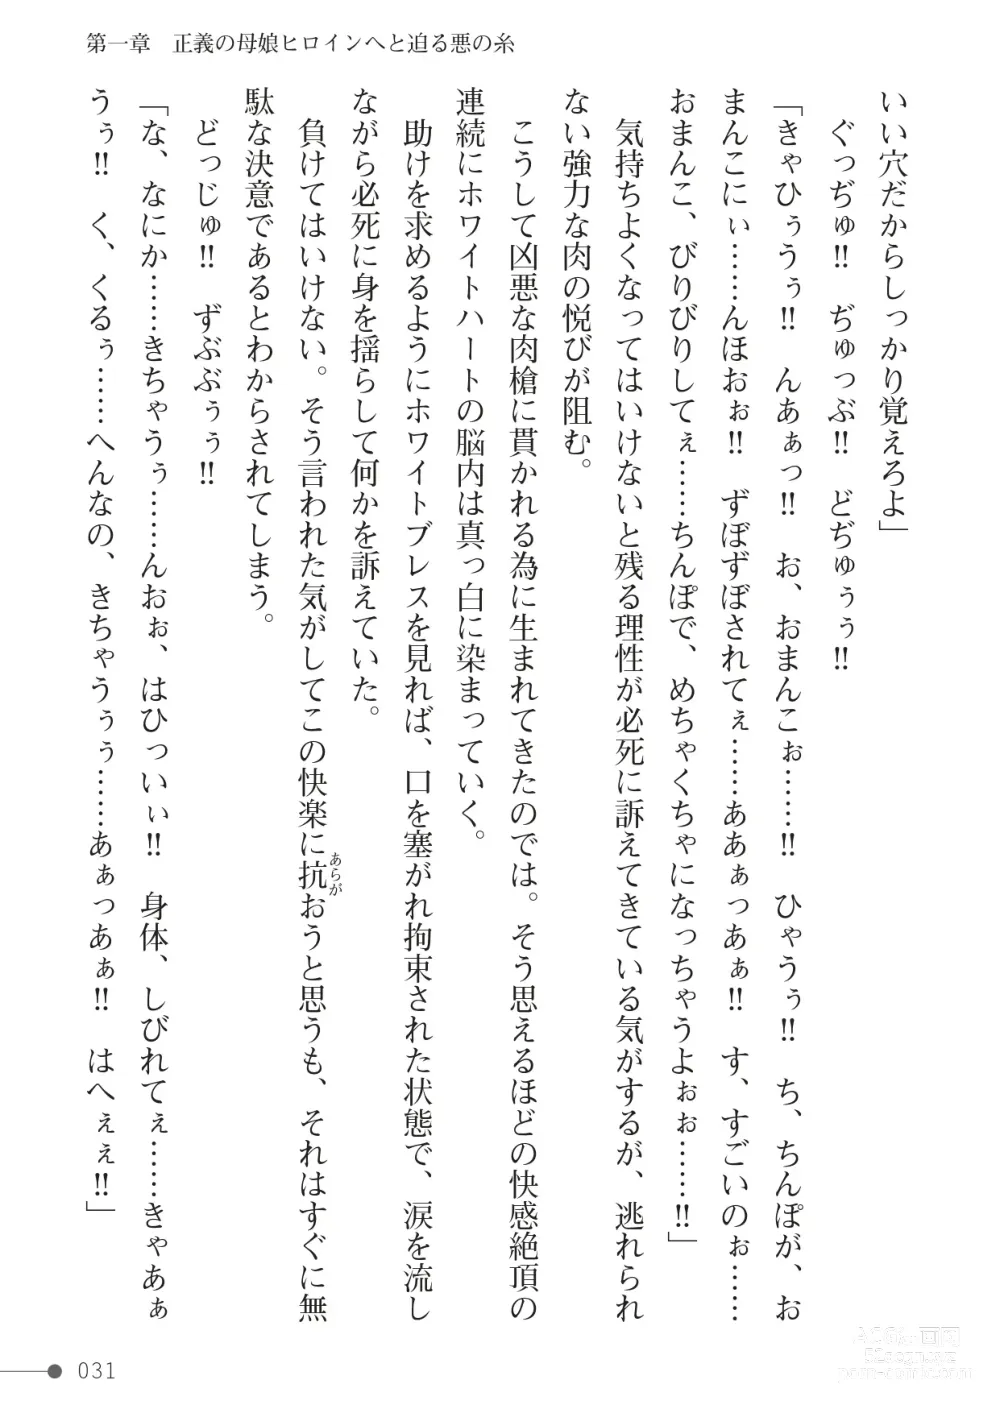 第一章　正義の母娘ヒロインへと迫る悪の糸
いい穴だからしっかり覚えろよ」
　ぐっぢゅ‼　ぢゅっぶ‼　どぢゅぅぅ‼
「きゃひぅうぅ‼　んあぁっ‼　お、おまんこぉ……‼　ひゃうぅ‼　ち、ちんぽが、お
まんこにぃ……んほおぉ‼　ずぼずぼされてぇ……ああぁっあぁ‼　す、すごいのぉ……
おまんこ、びりびりしてぇ……ちんぽで、めちゃくちゃになっちゃうよぉぉ……‼」
　気持ちよくなってはいけないと残る理性が必死に訴えてきている気がするが、逃れられ
ない強力な肉の悦びが阻む。
　こうして凶悪な肉槍に貫かれる為に生まれてきたのでは。そう思えるほどの快感絶頂の
連続にホワイトハートの脳内は真っ白に染まっていく。
　助けを求めるようにホワイトブレスを見れば、口を塞がれ拘束された状態で、涙を流し
ながら必死に身を揺らして何かを訴えていた。
　負けてはいけない。そう言われた気がしてこの快楽に抗おうと思うも、それはすぐに無
あらが
駄な決意であるとわからされてしまう。
　どっじゅ‼　ずぶぶぅぅ‼
「な、なにか……きちゃうぅ……んおぉ、はひっいぃ‼　身体、しびれてぇ……きゃあぁ
うぅ‼　く、くるぅ……へんなの、きちゃうぅぅ……あぁっあぁ‼　はへぇぇ‼」
031